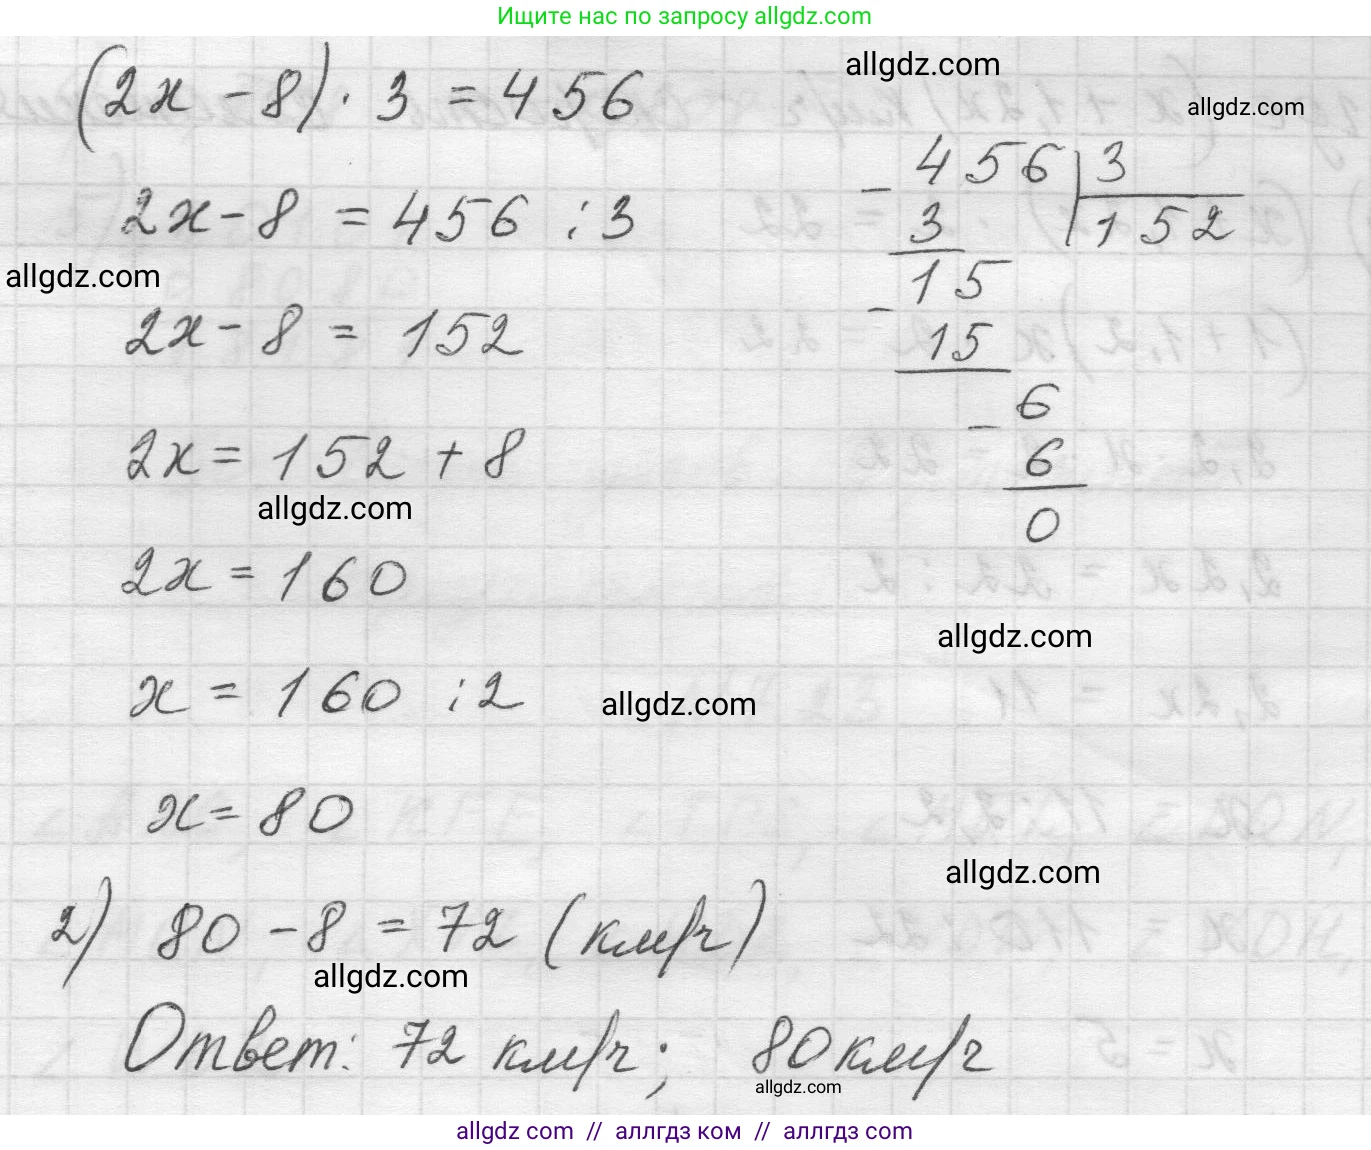 Ищите нас по запросу allgdz.com
(2x - 8) · 3 = 456
allgdz.com
allgdz.com
2x - 8 = 456 : 3
- 456 3
3 152
allgdz.com
15
2x - 8 = 152
- 15
6
2x = 152 + 8
- 6
allgdz.com
0
2x = 160
allgdz.com
x = 160 : 2
allgdz.com
x = 80
allgdz.com
2) 80 - 8 = 72 (км/ч)
allgdz.com
Ответ: 72 км/ч; 80 км/ч
allgdz.com
allgdz com // аллгдз ком // аллгдз com